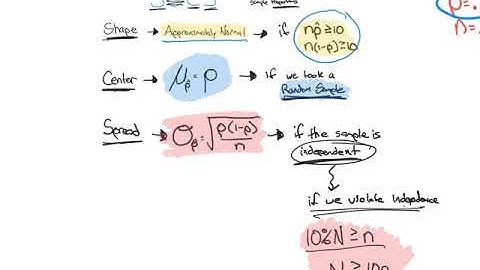 Sample Proportions
p=.
n=.
Shape → Approximately Normal → if np̂≥10
n(1-p)≥10
Center → μp̂ = p → if we took a
Random Sample
Spread → σp̂ = √p(1-p)/n → if the sample is
independent
if we violate indepedence
10%N ≥ n
N ≥ 10n